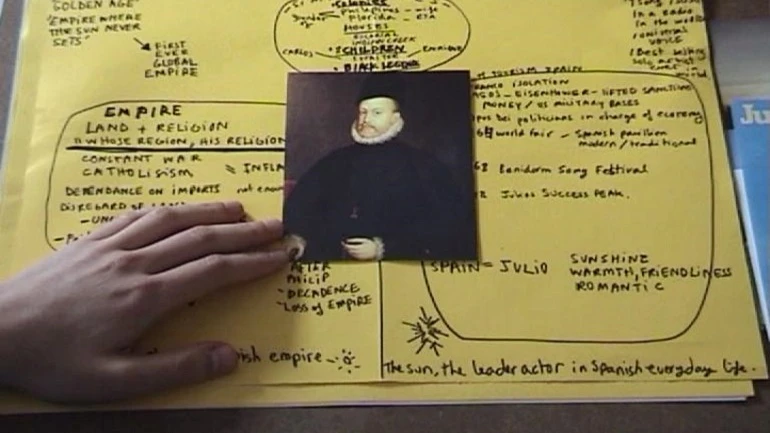 GOLDEN AGE"
"EMPIRE WHERE
THE SUN NEVER
SETS"
FIRST
EVER
GLOBAL
EMPIRE
COLONIES
Philippines
Florida - USA
HOUSES
CARLOS
CHILDREN
Enrique
BLACK LEGEND
EMPIRE
LAND + RELIGION
WHOSE REGION, HIS RELIGION
CONSTANT WAR
CATHOLISISM = INFLA
DEPENDANCE ON IMPORTS not enou
DISREGARD OF
AFTER
PHILIP
-DECADENCE
-Loss of EMPIRE
ish empire
TOURISM SPAIN
FRANCO ISOLATION
- EISENHOWER - LIFTED SANCTIONS
MONEY / US MILITARY BASES
opus dei politicians in charge of economy
world fair - Spanish pavilion
modern / traditional
68 Benidorm Song Festival
Julios SUCCESS PEAK.
SPAIN = JULIO
SUNSHINE
WARMTH, FRIENDLINESS
ROMANTIC
The sun, the leader actor in Spanish everyday life.
in a radio
in the world
universal
VOICE
(Best selling
solo artist
ever in
world
Ju